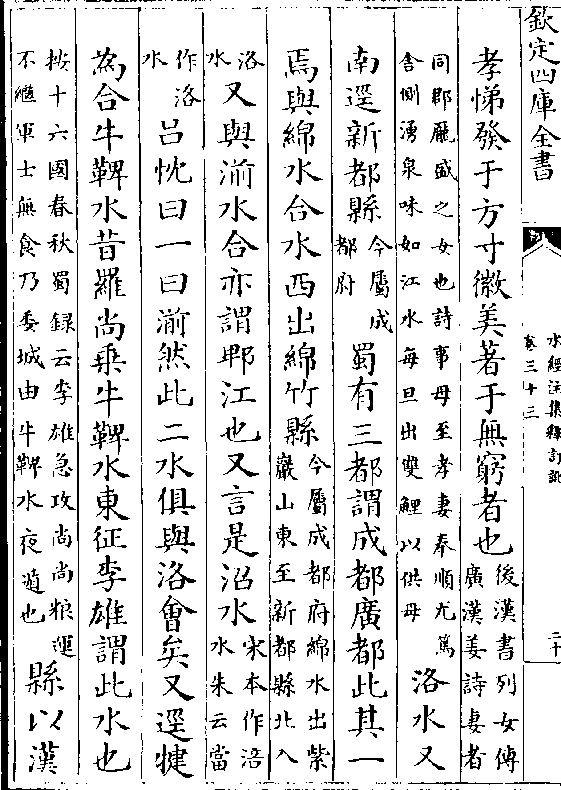 欽定四庫全書
水經注集釋訂訛
卷三十三
二十
孝悌發于方寸徽美著于無窮者也
後漢書列女傳
廣漢姜詩妻者
同郡龐盛之女也詩事母至孝妻奉順尤篤
舍側湧泉味如江水每旦出雙鯉以供母
洛水又
南逕新都縣
今屬成
都府
蜀有三都謂成都廣都此其一
焉與綿水合水西出綿竹縣
今屬成都府綿水出紫
巖山東至新都縣北入
洛
水
又與湔水合亦謂郫江也又言是沼水
宋本作涪
水朱云當
作洛
水
呂忱曰一曰湔然此二水俱與洛會矣又逕犍
為合牛鞞水昔羅尚乗牛鞞水東征李雄謂此水也
按十六國春秋蜀録云李雄急攻尚尚粮運
不繼軍士無食乃委城由牛鞞水夜遁也
縣以漢